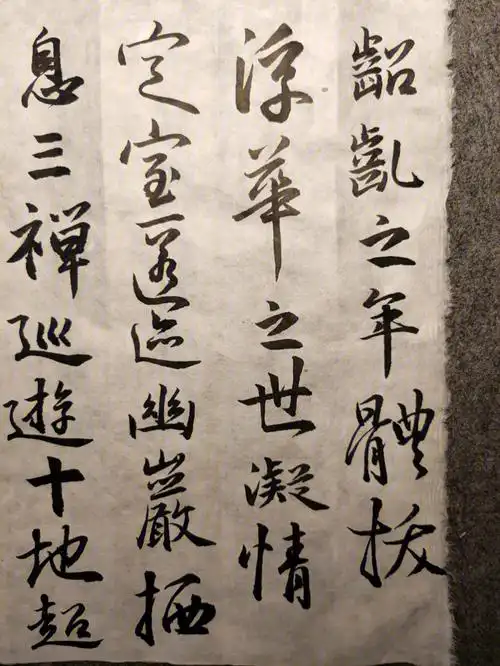 齠齔之年體拔
浮華之世凝情
定室匿迹幽巖栖
息三禪巡遊十地超